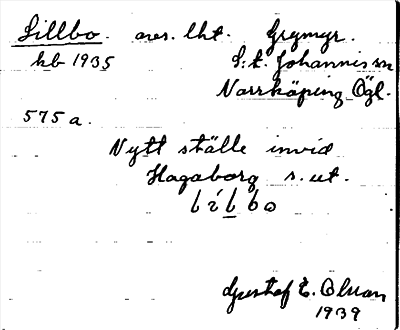 Lillbo. avs. lht. Grymyr.
kb 1935 S:t. Johannis sn
Norrköping Ögl.
575 a.
Nytt ställe invid
Hagaborg s. ut.
Gustaf E. Olson
1939